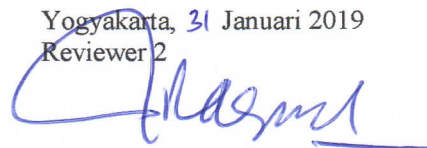 Yogyakarta, 31 Januari 2019
Reviewer 2